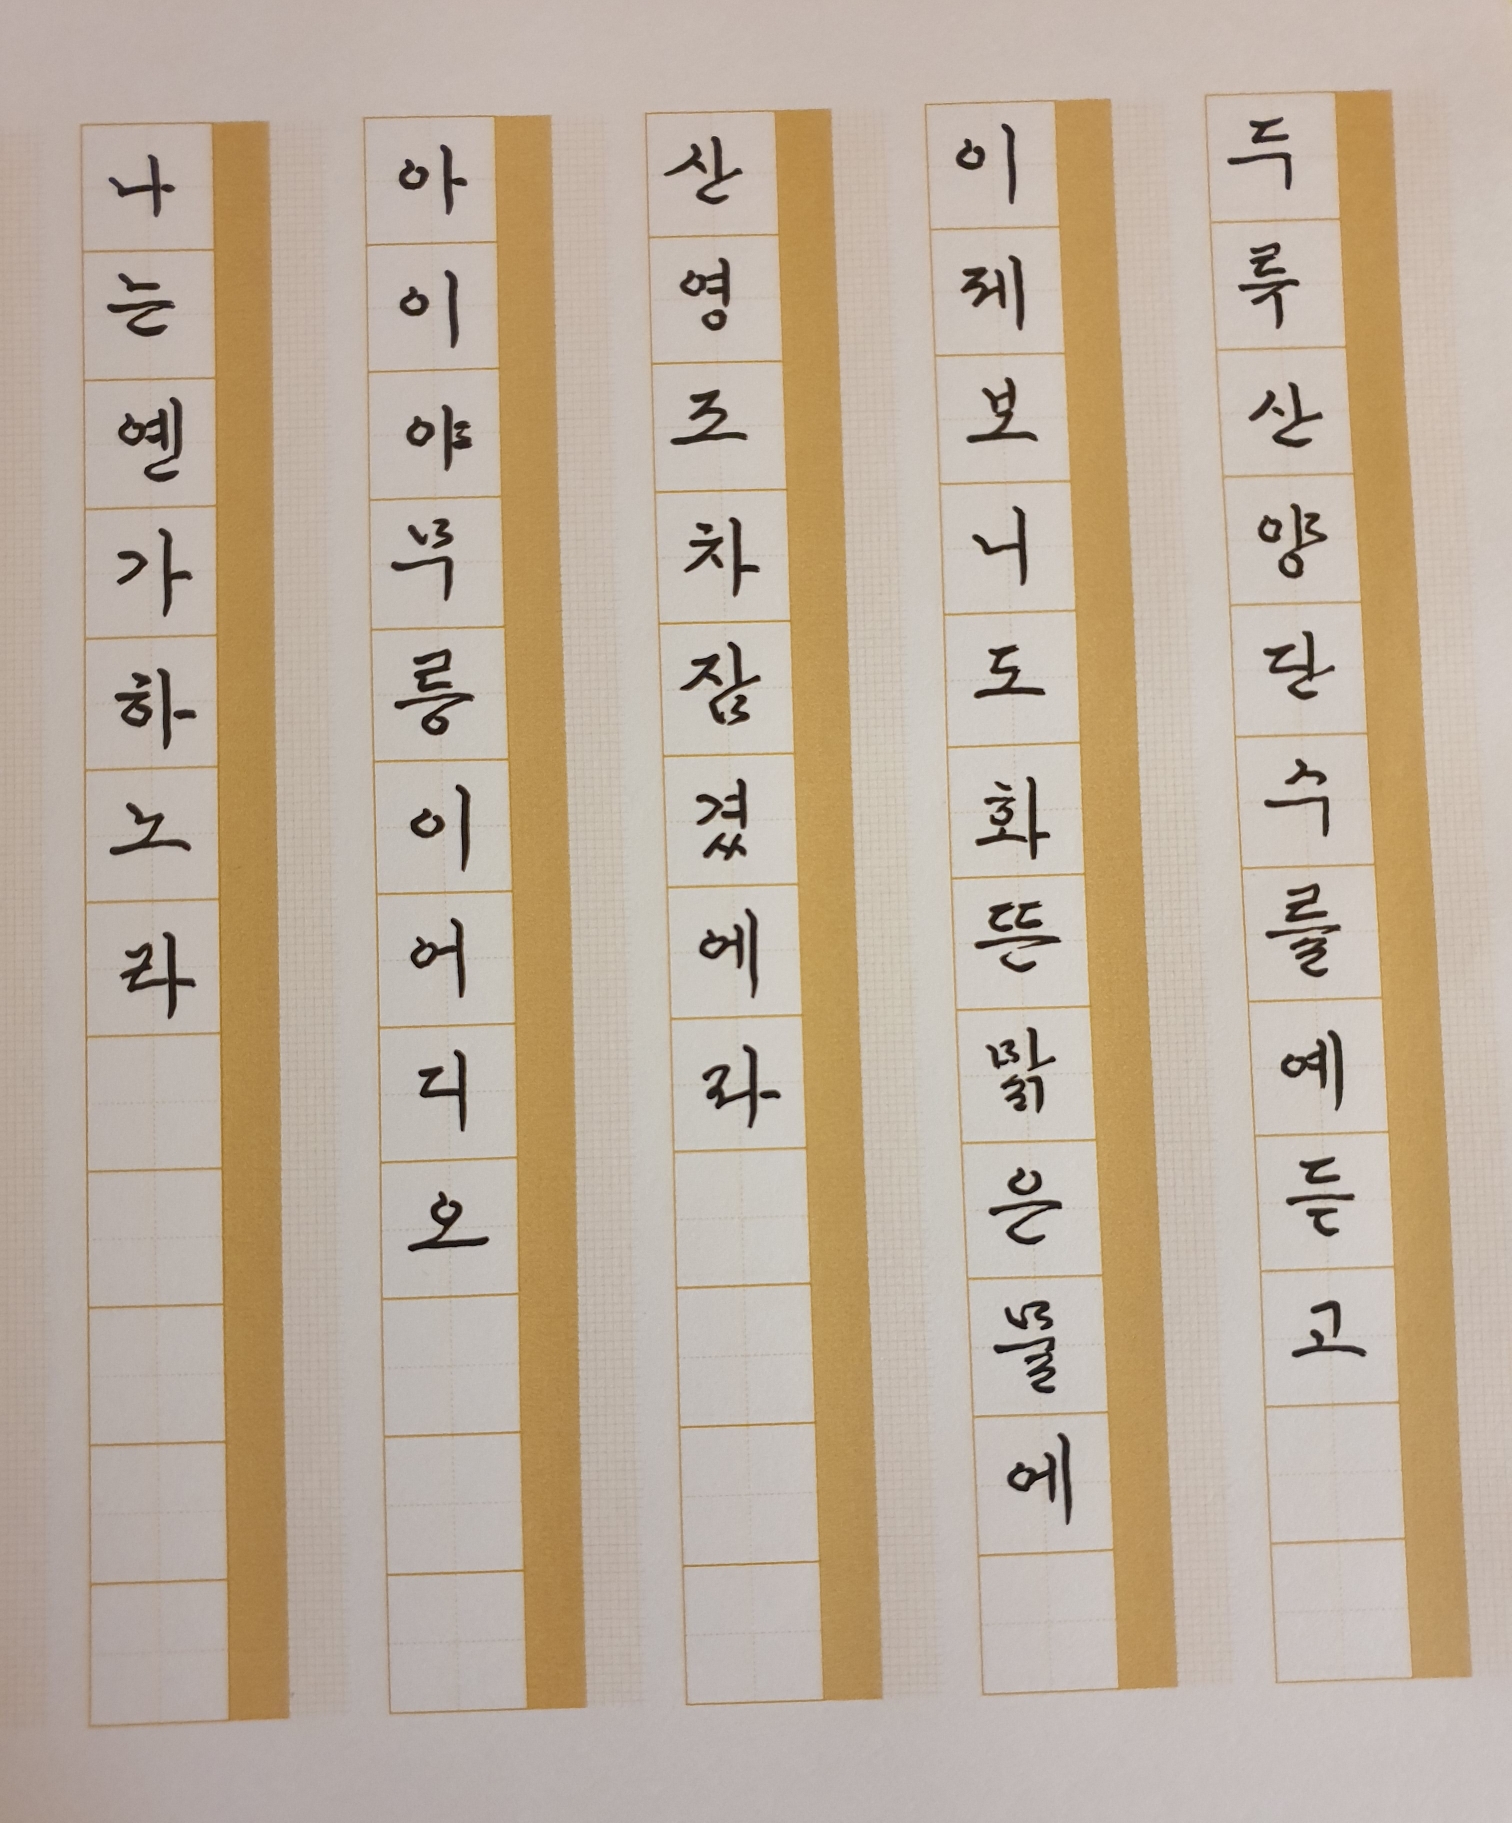 두루산양단수를예듣고
이제보니도화뜬맑은물에
산영조차잠겼에라
아이야무릉이어디오
나는옌가하노라